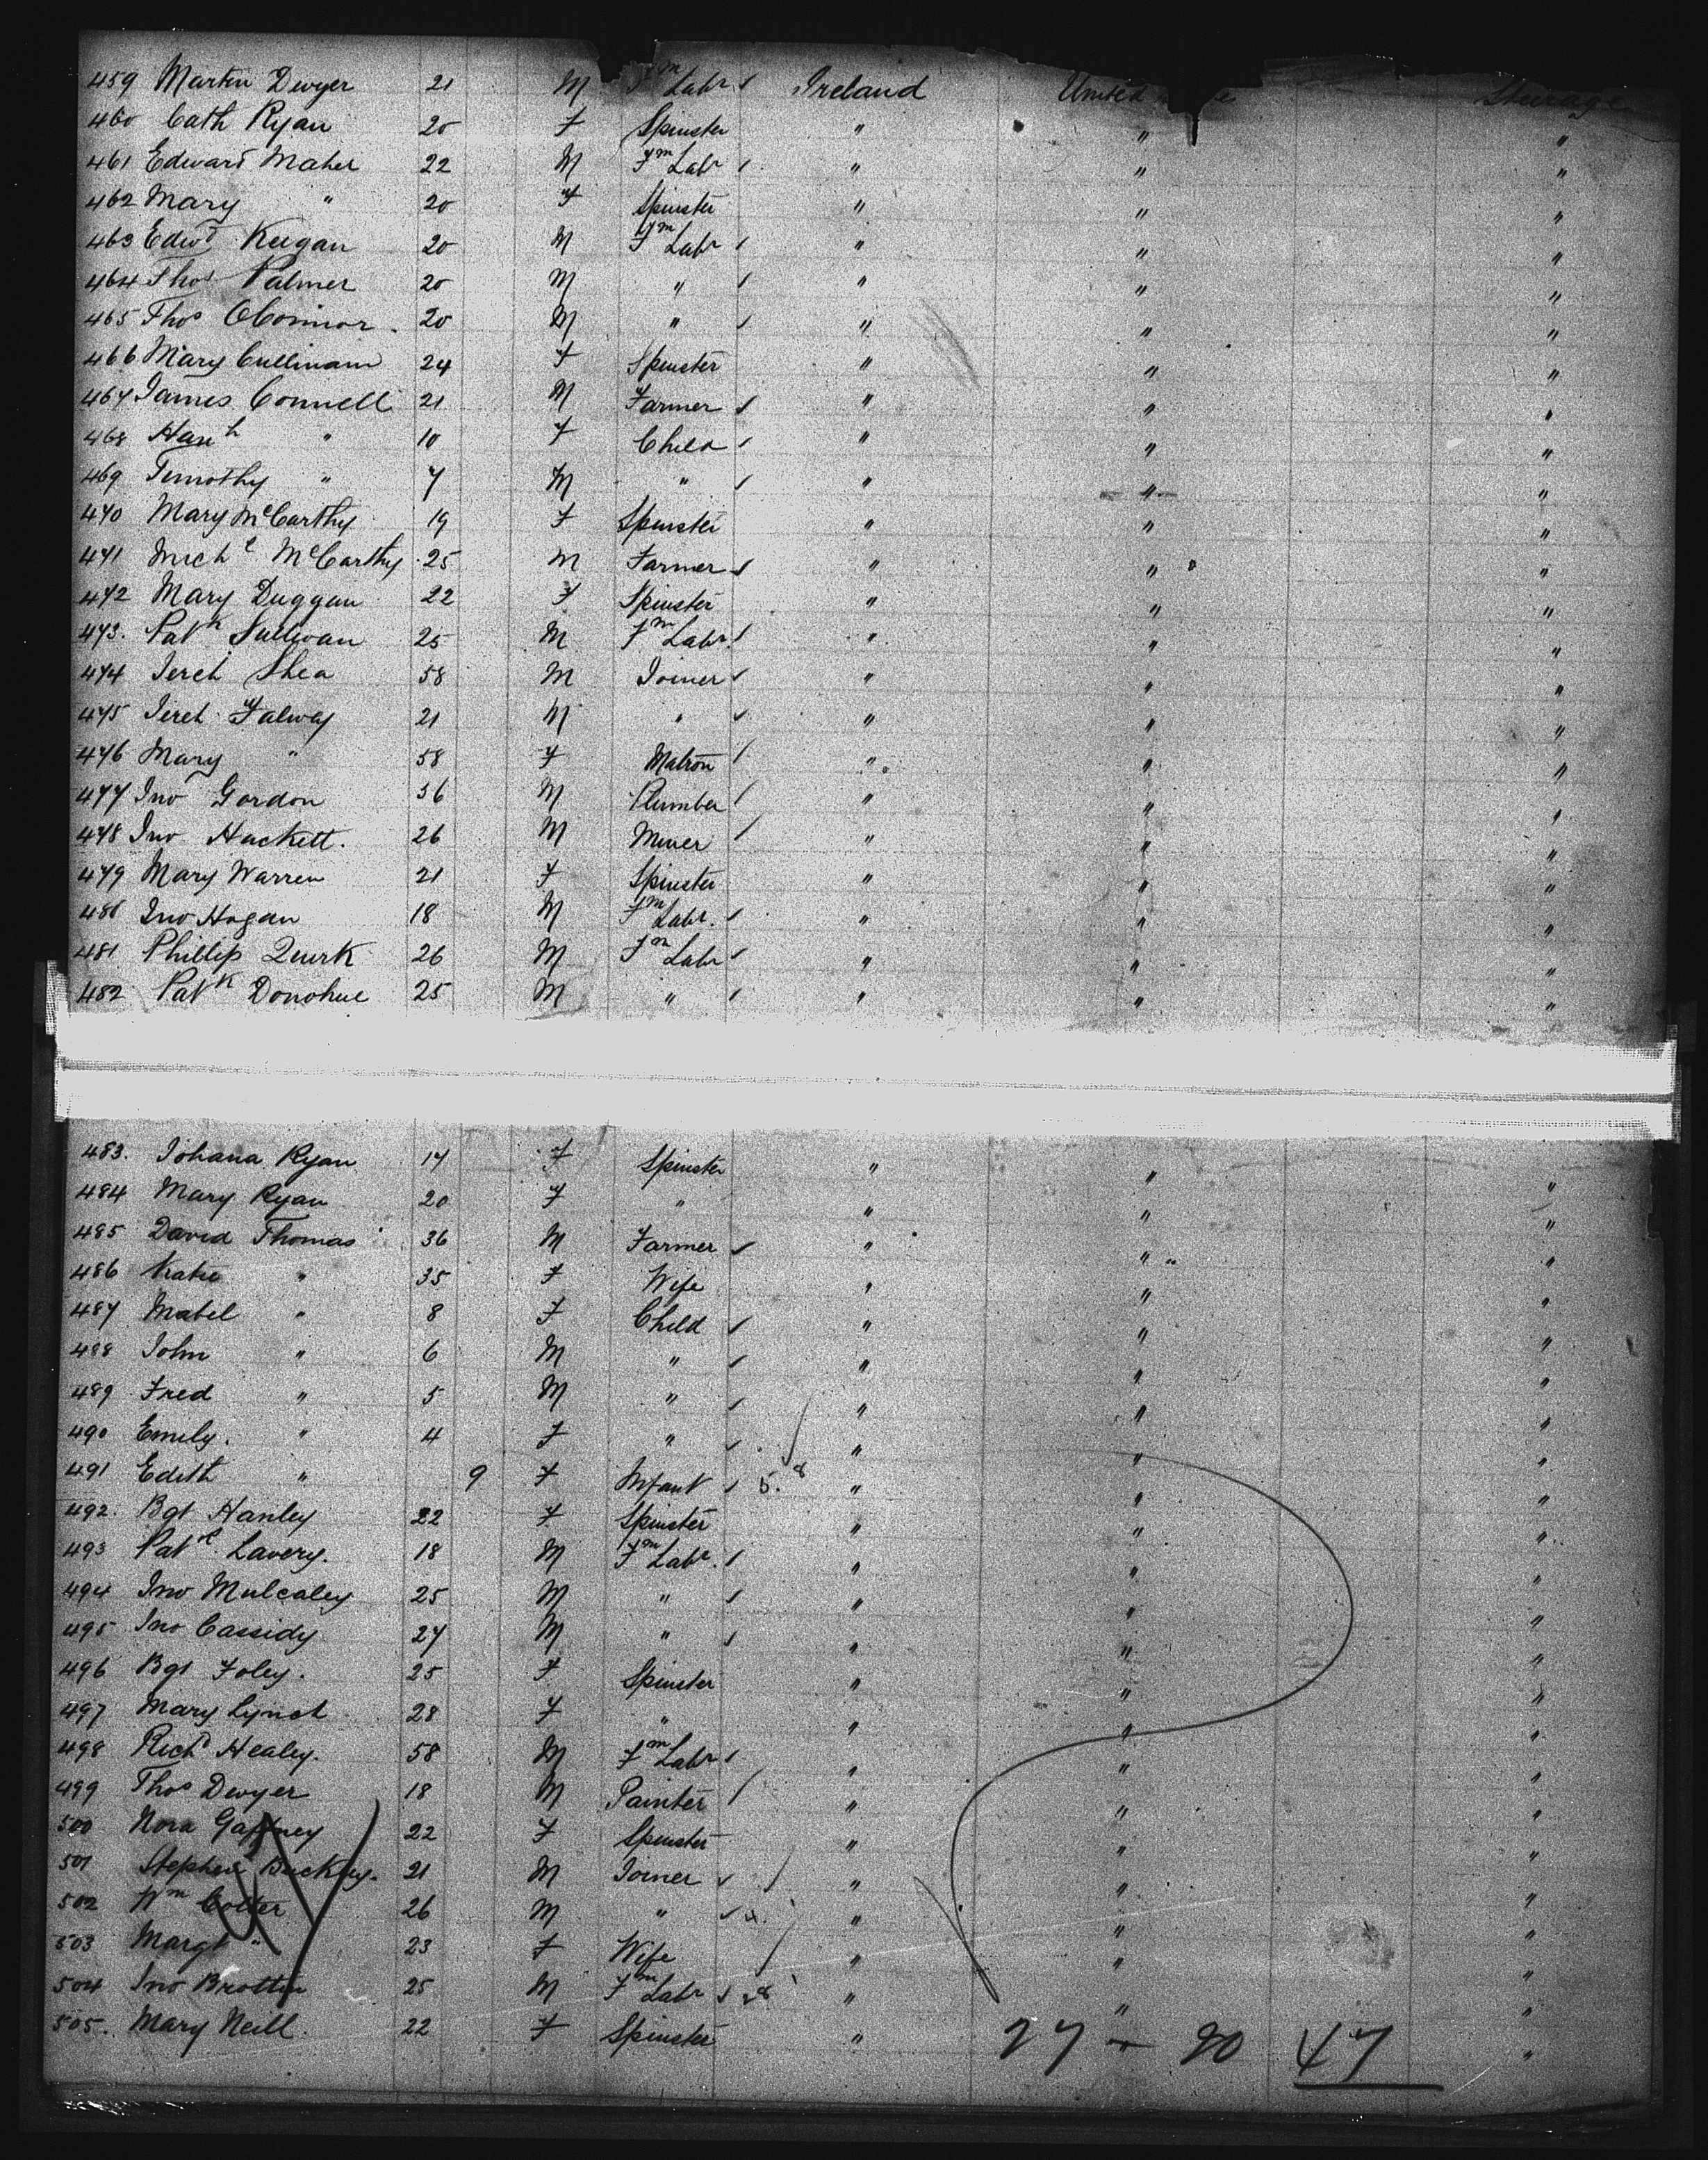 459 Martin Dwyer 21 M Fm Labr Ireland United Steerage
460 Cath Ryan 20 F Spinster " " "
461 Edward Maher 22 M Fm Labr " " "
462 Mary " 20 F Spinster " " "
463 Edwd Keegan 20 M Fm Labr " " "
464 Thos Palmer 20 M " " " "
465 Thos OConnor 20 M " " " "
466 Mary Cullinam 24 F Spinster " " "
467 James Connell 21 M Farmer " " "
468 Hanh " 10 F Child " " "
469 Timothy " 7 M " " " "
470 Mary McCarthy 19 F Spinster " " "
471 Michl McCarthy 25 M Farmer " " "
472 Mary Duggan 22 F Spinster " " "
473. Patk Sullivan 25 M Fm Labr " " "
474 Jereh Shea 58 M Joiner " " "
475 Jereh Falvey 21 M " " " "
476 Mary " 58 F Matron " " "
477 Jno Gordon 36 M Plumber " " "
478 Jno Hackett. 26 M Miner " " "
479 Mary Warren 21 F Spinster " " "
480 Jno Hogan 18 M Fm Labr. " " "
481 Phillip Quirk 26 M Fm Labr " " "
482 Patk Donohue 25 M " " " "
483. Johana Ryan 17 F Spinster " " "
484 Mary Ryan 20 F " " " "
485 David Thomas 36 M Farmer " " "
486 Katie " 35 F Wife " " "
487 Mabel " 8 F Child " " "
488 John " 6 M " " " "
489 Fred " 5 M " " " "
490 Emily. " 4 F " " " "
491 Edith " 9 F Infant " " "
492. Bgt Hanley 22 F Spinster " " "
493 Patk Lavery. 18 M Fm Labr. " " "
494 Jno Mulcaley 25 M " " " "
495 Jno Cassidy 27 M " " " "
496 Bgt Foley. 25 F Spinster " " "
497 Mary Lynch 28 F " " " "
498 Richd Healey. 58 M Fm Labr " " "
499 Thos Dwyer 18 M Painter " " "
500 Nora Gaffney 22 F Spinster " " "
501 Stephen Buckley. 21 M Joiner " " "
502 Wm Colter 26 M " " " "
503 Margt " 23 F Wife " " "
504 Jno Brottin 25 M Fm Labr " " "
505. Mary Neill. 22 F Spinster " "
27 - 20 47